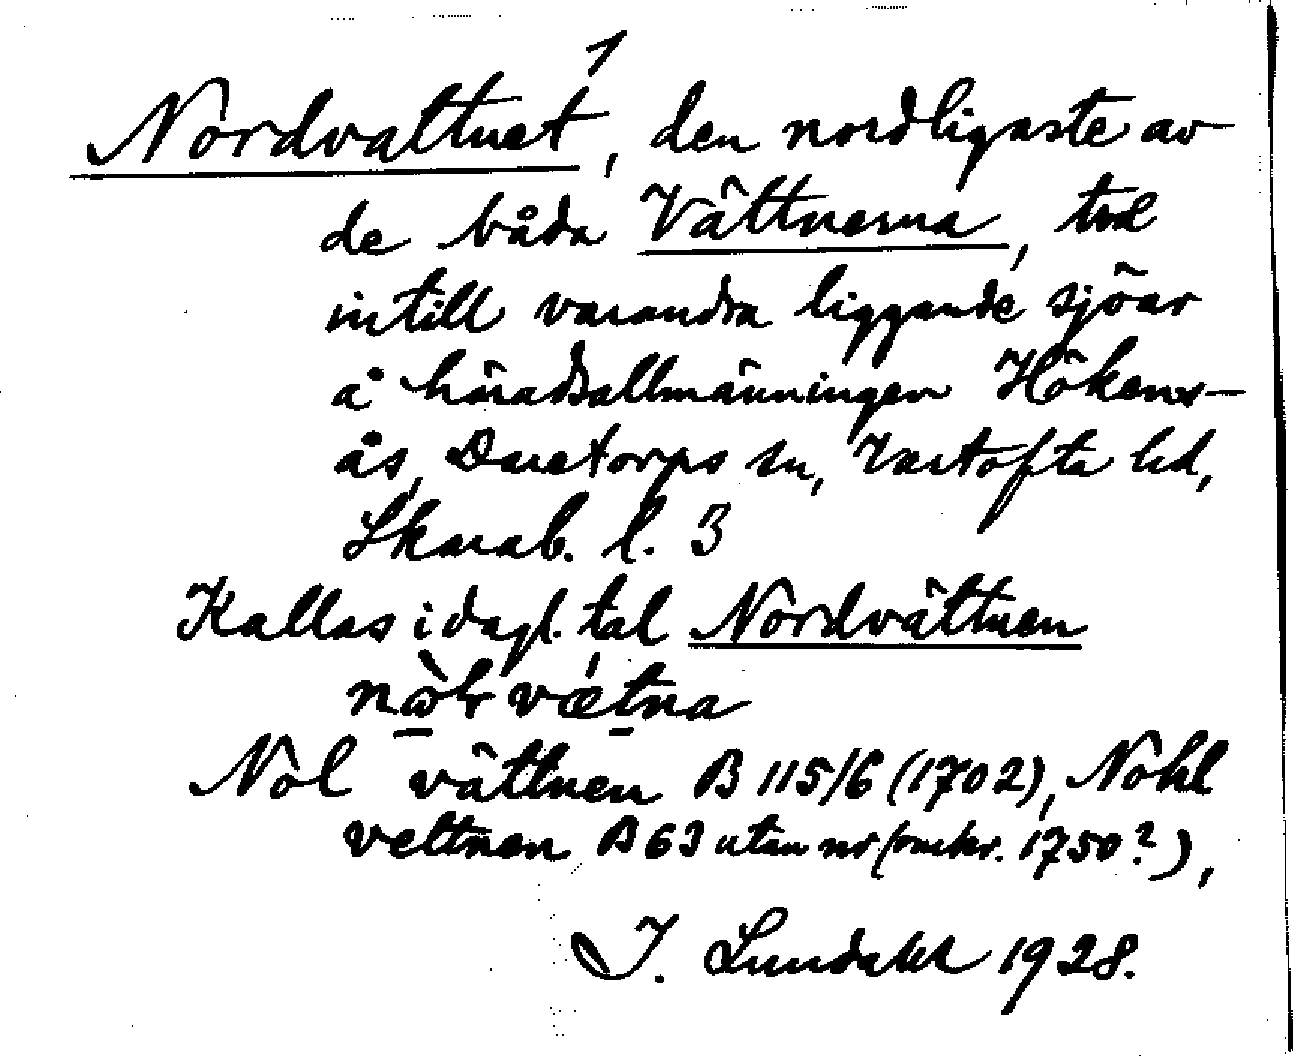 1
Nordvattnet, den nordligaste av
de båda Vättnerna, två
intill varandra liggande sjöar
å häradsallmänningen Hökens-
ås, Daretorps sn, Vartofta hd,
Skarab. l. 3
Kallas i dagl. tal Nordvättnen
Nol vättnen B 115/6 (1702), Nohl
vettnen B 63 utan nr (omkr. 1750?),
I. Lundahl 1928.